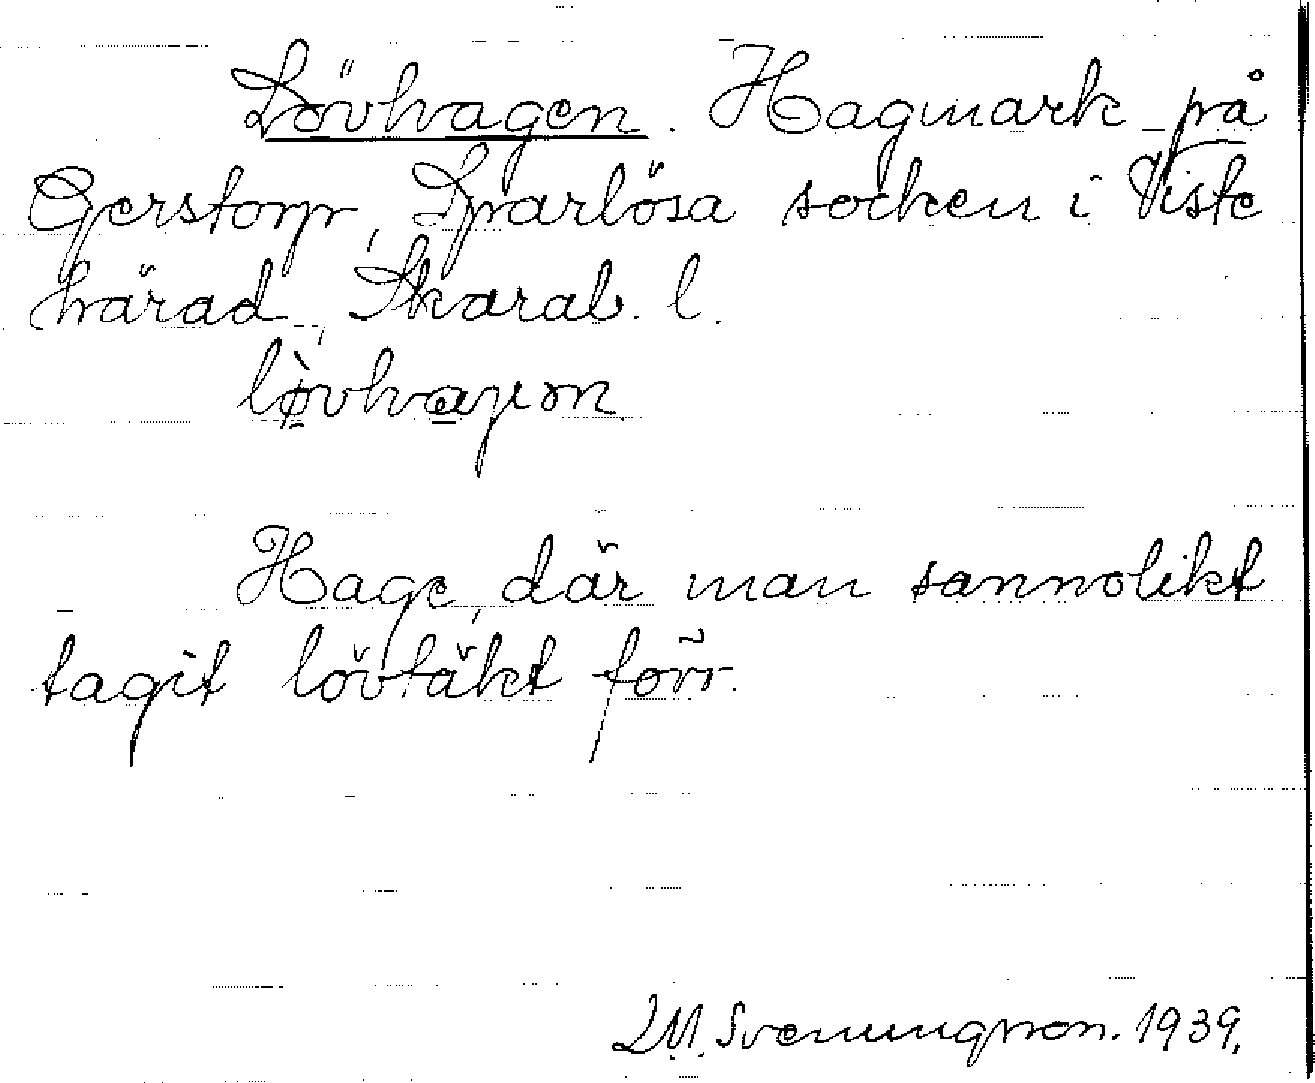 Lövhagen. Hagmark på
Gerstorp, Sparlösa socken i Viste
härad, Skarab. l.
lø̀vhaγɷn
Hage, där man sannolikt
tagit lövtäkt förr.
L M. Svenungsson. 1939.